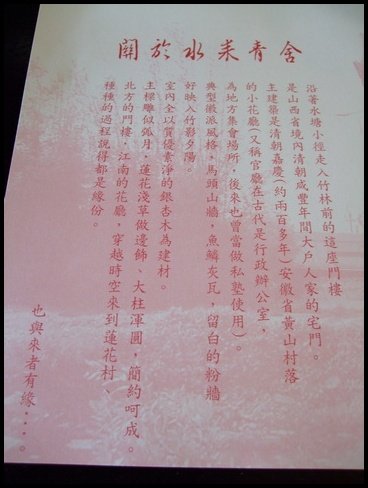 關於水來青舍
沿著水塘小徑走入竹林前的這座門樓
是山西省境內清朝咸豐年間大戶人家的宅門。
主建築是清朝嘉慶(約兩百多年)安徽省黃山村落
的小花廳(又稱官廳在古代是行政辦公室，
為地方集會場所，後來也曾當做私塾使用)。
典型徽派風格，馬頭山牆，魚鱗灰瓦，留白的粉牆
好映入竹影夕陽。
室內全以質優素淨的銀杏木為建材。
主樑雕似弧月，蓮花淺草做邊飾、大柱渾圓，簡約呵成。
北方的門樓，江南的花廳，穿越時空來到蓮花村、
種種的過程說得都是緣份。
也與來者有緣....。